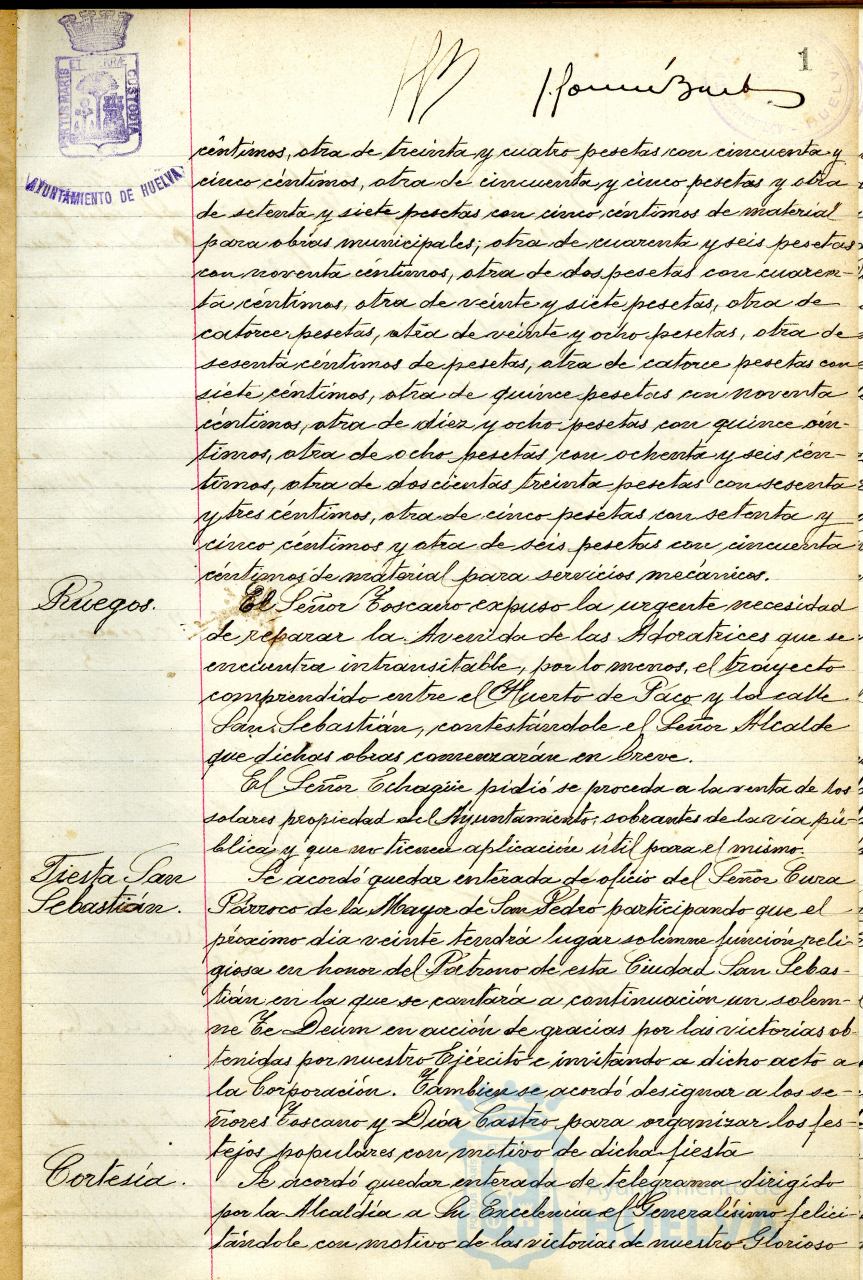 1
PORTUS MARIS
ET TERRÆ
CUSTODIA
AYUNTAMIENTO DE HUELVA
céntimos, otra de treinta y cuatro pesetas con cincuenta y
cinco céntimos, otra de cincuenta y cinco pesetas y otra
de setenta y siete pesetas con cinco céntimos de material
para obras municipales; otra de cuarenta y seis pesetas
con noventa céntimos, otra de dos pesetas con cuaren-
ta céntimos, otra de veinte y siete pesetas, otra de
catorce pesetas, otra de veinte y ocho pesetas, otra de
sesenta céntimos de pesetas, otra de catorce pesetas con
siete céntimos, otra de quince pesetas con noventa
céntimos, otra de diez y ocho pesetas con quince cén-
timos, otra de ocho pesetas con ochenta y seis cén-
timos, otra de doscientas treinta pesetas con sesenta
y tres céntimos, otra de cinco pesetas con setenta y
cinco céntimos y otra de seis pesetas con cincuenta
céntimos de material para servicios mecánicos.
Ruegos.
El Señor Toscano expuso la urgente necesidad
de reparar la Avenida de las Adoratrices que se
encuentra intransitable, por lo menos, el trayecto
comprendido entre el Huerto de Paco y la calle
San Sebastián, contestándole el Señor Alcalde
que dichas obras comenzarán en breve.
El Señor Echagüe pidió se proceda a la venta de los
solares propiedad del Ayuntamiento, sobrantes de la vía pú-
blica y que no tienen aplicación útil para el mismo.
Fiesta San
Sebastián.
Se acordó quedar enterada de oficio del Señor Cura
Párroco de la Mayor de San Pedro participando que el
próximo dia veinte tendrá lugar solemne función reli-
giosa en honor del Patrono de esta Ciudad San Sebas-
tián en la que se cantará a continuación un solem-
ne Te Deum en acción de gracias por las victorias ob-
tenidas por nuestro Ejército e invitando a dicho acto a
la Corporación. Tambien se acordó designar a los se-
ñores Toscano y Díaz Castro para organizar los fes-
tejos populares con motivo de dicha fiesta
Cortesía.
Se acordó quedar enterada de telegrama dirigido
por la Alcaldía a Su Excelencia el Generalísimo felici-
tándole con motivo de las victorias de nuestro Glorioso
Ayuntamiento de
HUELVA